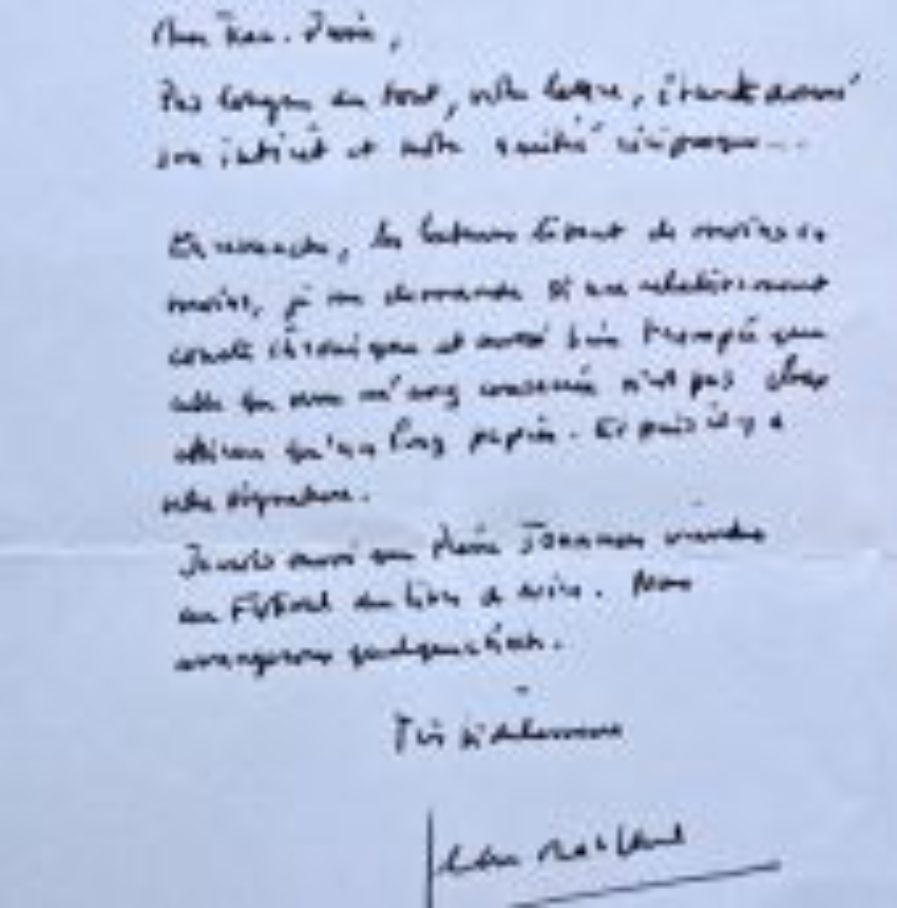 Pas longue du tout, votre lettre, étant donné
son intérêt et notre amitié réciproque...
En revanche, les lecteurs lisent de moins en
moins, je me demande si une relativement
courte chronique et aussi bien trempée que
celle que vous m'avez consacrée n'est pas plus
qu'un long papier. Et puis il y a
votre signature.
Je suis ravi que Pierre Joannon viendra
au Festival du livre de Nice. Nous
arrangerons quelque chose.
Très fidèlement